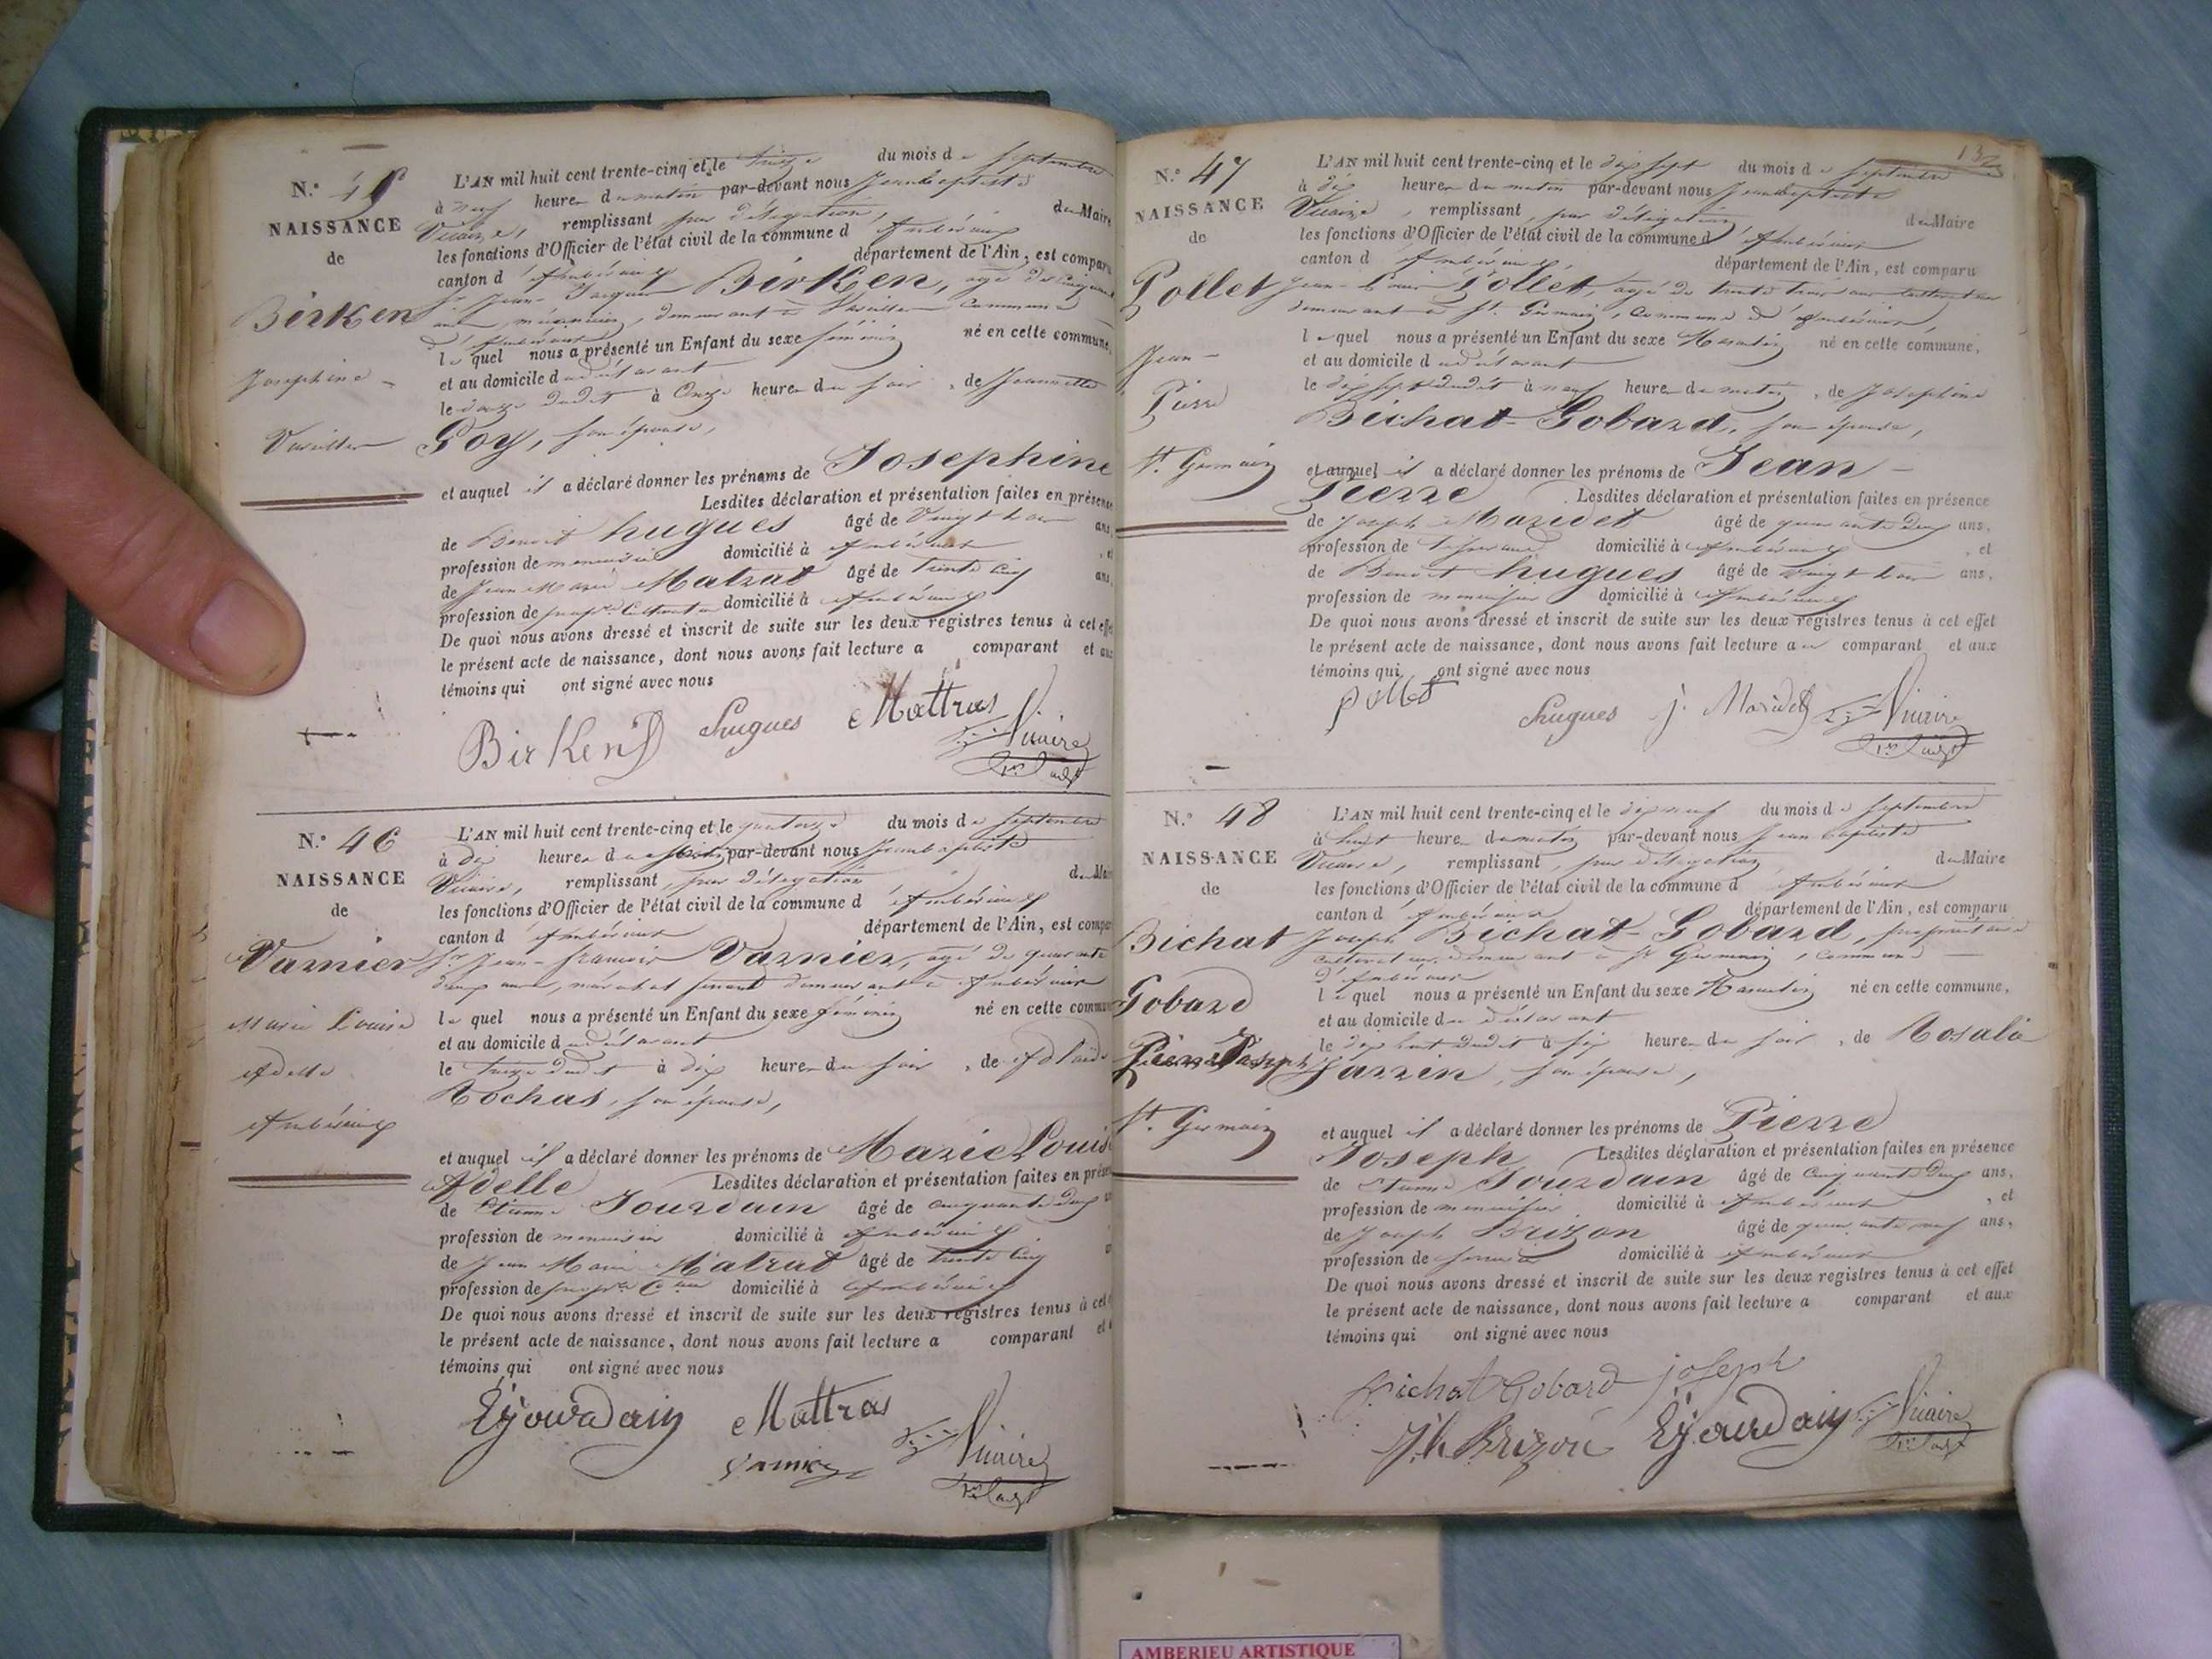 N.° 45
NAISSANCE
de
Birken
Josephine
Vareilles
L'AN mil huit cent trente-cinq et le treize du mois de Septembre
à neuf heures du matin par-devant nous Jean baptiste
Vicaire, remplissant par délégation, du Maire
les fonctions d'Officier de l'état civil de la commune d'Ambérieux
canton d'Ambérieux département de l'Ain, est comparu
Sr Jean-Jacques Birken, agé de cinquante
ans, mécanicien, demeurant à Vareilles commune
d'Ambérieux
lequel nous a présenté un Enfant du sexe féminin né en cette commune,
et au domicile du déclarant
le douze dudit à Onze heures du soir, de Jeannette
Goy, son épouse,
et auquel il a déclaré donner les prénoms de Josephine
Lesdites déclaration et présentation faites en présence
de Benoit hugues âgé de Vingt trois ans,
profession de menuisier domicilié à Ambérieux, et
de Jean Marie Matrat âgé de trente cinq ans,
profession de prop.re Cultivateur domicilié à Ambérieux
De quoi nous avons dressé et inscrit de suite sur les deux registres tenus à cet effet
le présent acte de naissance, dont nous avons fait lecture a comparant et aux
témoins qui ont signé avec nous
Birken Hugues Mattras Vicaire
N.° 46
NAISSANCE
de
Varnier
Marie Louise
Adelle
Ambérieux
L'AN mil huit cent trente-cinq et le quatorze du mois de Septembre
à dix heures du matin par-devant nous Jean baptiste
Vicaire, remplissant, par délégation du Maire
les fonctions d'Officier de l'état civil de la commune d'Ambérieux
canton d'Ambérieux département de l'Ain, est comparu
Sr Jean-françois Varnier, agé de quarante
deux ans, demeurant à Ambérieux
lequel nous a présenté un Enfant du sexe féminin né en cette commune
et au domicile du déclarant
le treize dudit à dix heures du soir, de Adelaïde
Rochas, son épouse,
et auquel il a déclaré donner les prénoms de Marie Louise
Adelle Lesdites déclaration et présentation faites en présence
de Etienne Jourdain âgé de cinquante deux
profession de menuisier domicilié à Ambérieux
de Jean Marie Matrat âgé de trente cinq
profession de prop.re domicilié à Ambérieux
De quoi nous avons dressé et inscrit de suite sur les deux registres tenus à cet
le présent acte de naissance, dont nous avons fait lecture a comparant et
témoins qui ont signé avec nous
Ejourdain Mattras
Varnier Vicaire
13
N.° 47
NAISSANCE
de
Pollet
Jean-
Pierre
St. Germain
L'AN mil huit cent trente-cinq et le dix sept du mois de Septembre
à dix heures du matin par-devant nous Jean baptiste
Vicaire, remplissant, par délégation du Maire
les fonctions d'Officier de l'état civil de la commune d'Ambérieux
canton d'Ambérieux, département de l'Ain, est comparu
Jean-Louis Pollet, agé de trente trois ans cultivateur
demeurant à St. Germain, commune d'Ambérieux,
lequel nous a présenté un Enfant du sexe Masculin né en cette commune,
et au domicile du déclarant
le dix sept dudit à neuf heures du matin, de Josephine
Bichat-Gobard, son épouse,
et auquel il a déclaré donner les prénoms de Jean-
Pierre Lesdites déclaration et présentation faites en présence
de Joseph Maridet âgé de quarante deux ans,
profession de Tisserand domicilié à Ambérieux, et
de Benoit hugues âgé de vingt trois ans,
profession de menuisier domicilié à Ambérieux
De quoi nous avons dressé et inscrit de suite sur les deux registres tenus à cet effet
le présent acte de naissance, dont nous avons fait lecture au comparant et aux
témoins qui ont signé avec nous
pollet Hugues j. Maridet Vicaire
N.° 48
NAISSANCE
de
Bichat
Gobard
Pierre Joseph
St. Germain
L'AN mil huit cent trente-cinq et le dix neuf du mois de Septembre
à huit heures du matin par-devant nous Jean baptiste
Vicaire, remplissant, par délégation du Maire
les fonctions d'Officier de l'état civil de la commune d'Ambérieux
canton d'Ambérieux département de l'Ain, est comparu
Joseph Bichat-Gobard, propriétaire
cultivateur, demeurant à St Germain, commune
d'Ambérieux
lequel nous a présenté un Enfant du sexe Masculin né en cette commune,
et au domicile du déclarant
le dix huit dudit à six heures du soir, de Rosalie
Jarrin, son épouse,
et auquel il a déclaré donner les prénoms de Pierre
Joseph Lesdites déclaration et présentation faites en présence
de Etienne Jourdain âgé de cinquante deux ans,
profession de menuisier domicilié à Ambérieux, et
de Joseph Brizon âgé de quarante neuf ans,
profession de domicilié à Ambérieux
De quoi nous avons dressé et inscrit de suite sur les deux registres tenus à cet effet
le présent acte de naissance, dont nous avons fait lecture a comparant et aux
témoins qui ont signé avec nous
Bichat Gobard joseph
Jh Brizon Ejourdain Vicaire
AMBERIEU ARTISTIQUE